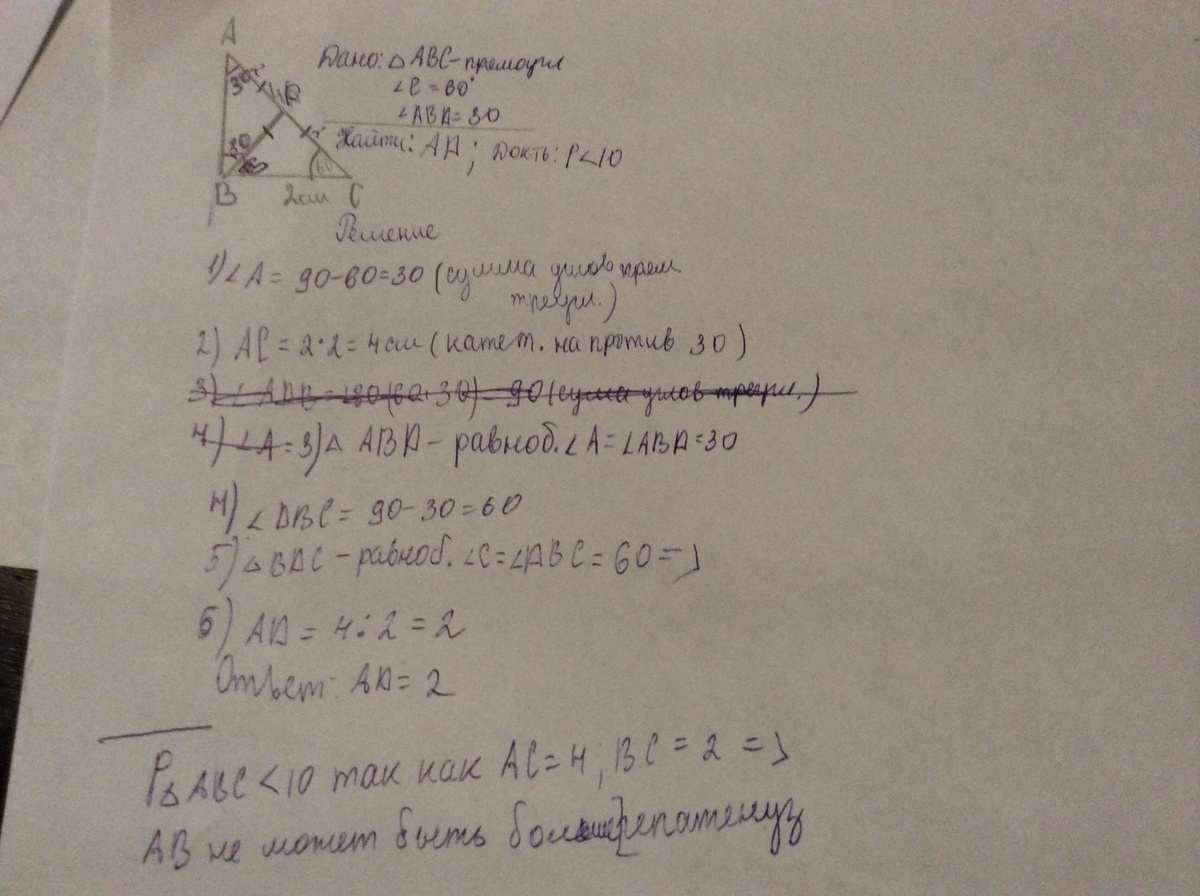 A
Дано: △ ABC - прямоугл
30°
∠C = 60°
∠ABD = 30
D
Найти: AD; Док-ть: P<10
30
60
60
B 2см C
Решение
1) ∠A = 90-60=30 (сумма углов прям.
треугл.)
2) AC = 2·2 = 4 см (катет. на против 30)
3) ∠ ADB = 180 (60+30) = 90 (сума углов треугл.)
4) ∠A = 3) △ ABD - равноб. ∠A = ∠ABD = 30
4) ∠DBC = 90-30=60
5) △BDC - равноб. ∠C=∠ABC = 60 =>
6) AD = 4:2 = 2
Ответ: AD = 2
P△ABC <10 так как AC=4; BC = 2 =>
AB не может быть больше гепатенуз